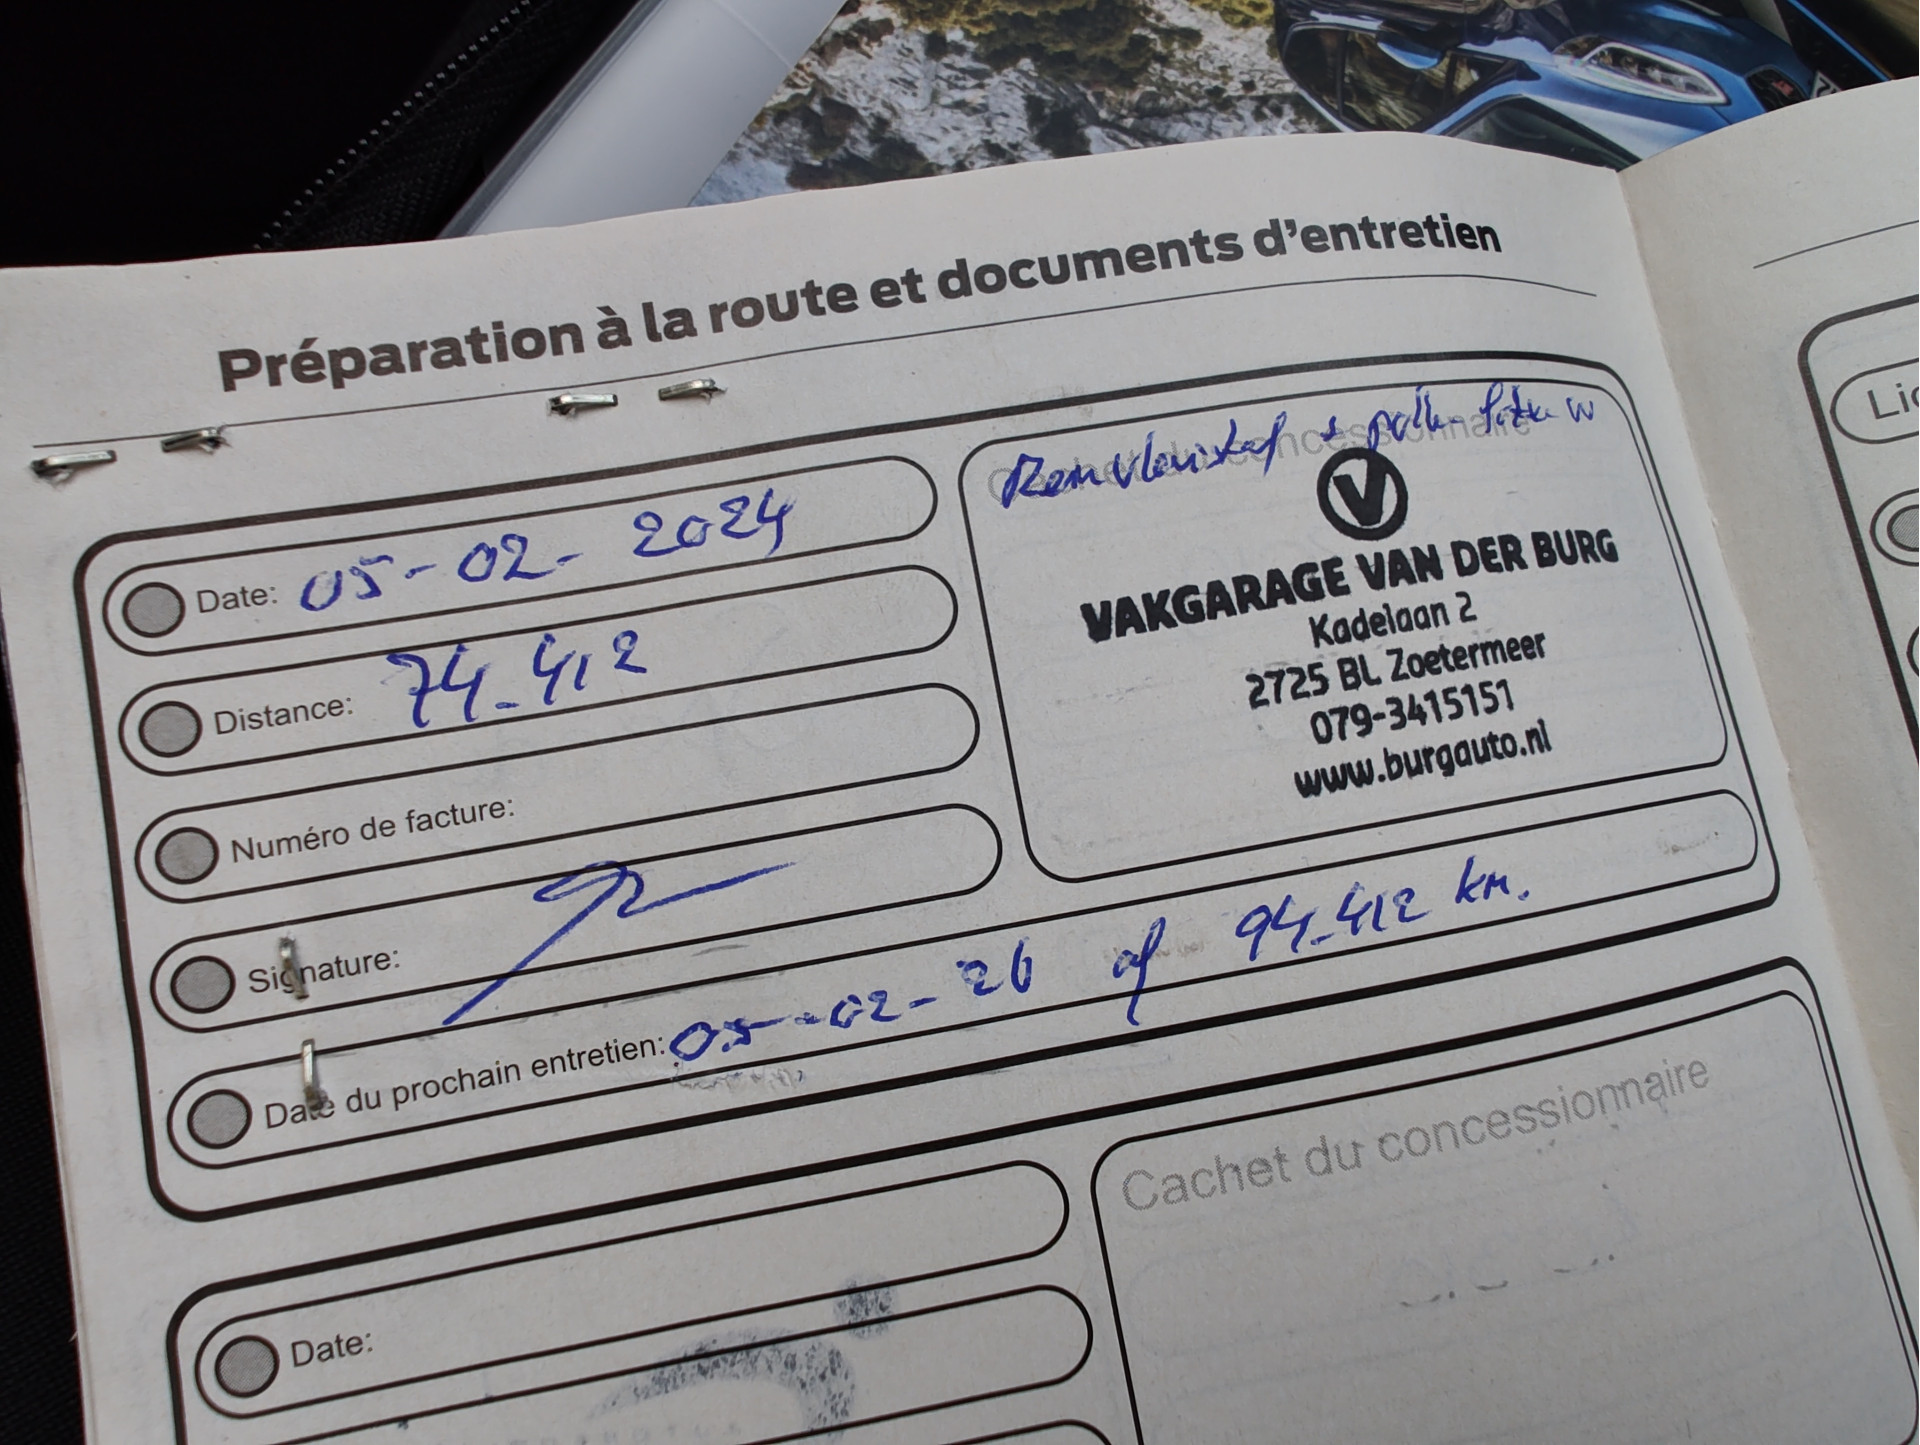 Préparation à la route et documents d'entretien
Date: 05-02-2024
Distance: 74.412
Numéro de facture:
Signature:
Date du prochain entretien: 05-02-26 of 94.412 km.
Cachet du concessionnaire
Remvloeistof + pollenfilter
VAKGARAGE VAN DER BURG
Kadelaan 2
2725 BL Zoetermeer
079-3415151
www.burgauto.nl
Date:
Cachet du concessionnaire
Lic